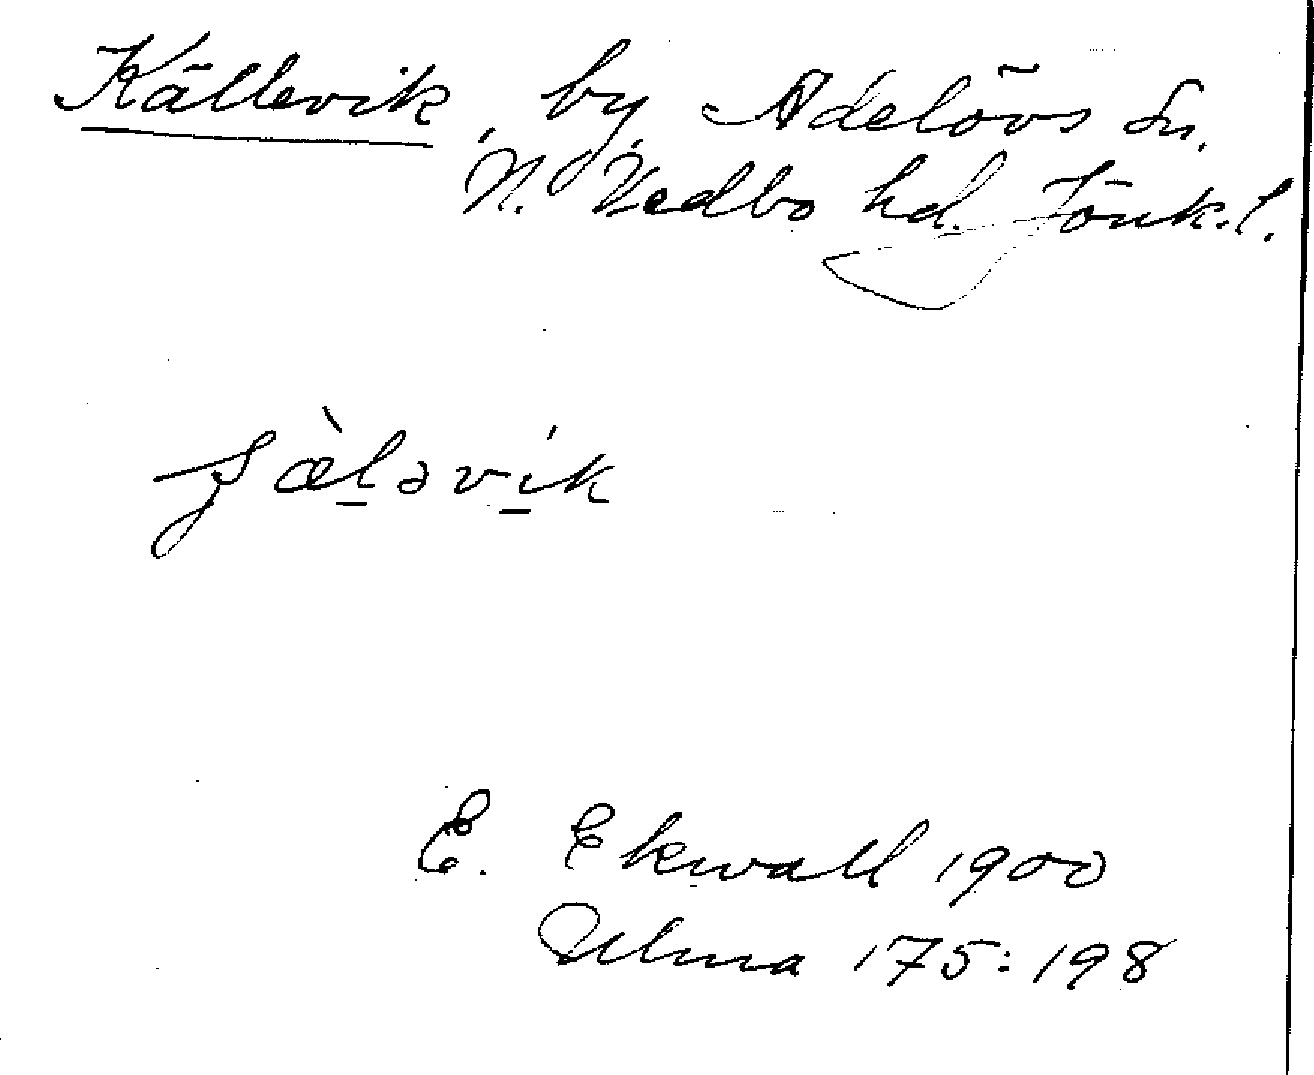 Källevik, by, Adelövs sn.
N. Vedbo hd. Jönk. l.
ʃæ̀l̠əvi̠k
E. Ekwall 1900
Ulma 175:198